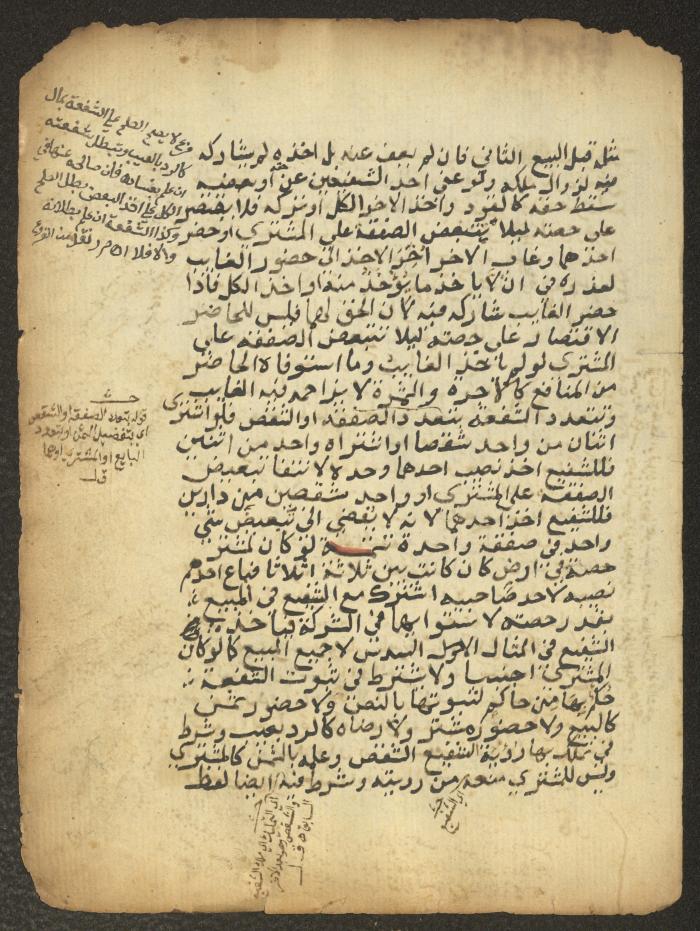 مثله قبل البيع الثاني فان لم يعف عنه بل اخذه لم يشاركه
فيه لزوال ملكه ولو عفى احد الشفيعين عن حقه او بعضه
سقط حقه كالقود واخذ الاخر الكل او تركه فلا يقتصر
على حصته ليلا تتبعض الصفقة على المشتري او حضر
احدهما وغاب الاخر اخر الاخذ الى حضور الغايب
لعذره في ان لا ياخذ ما يؤخذ منه او اخذ الكل فاذا
حضر الغايب شاركه فيه لان الحق لهما فليس للحاضر
الاقتصار على حصته ليلا تتبعض الصفقة على
المشتري لو لم ياخذ الغايب وما استوفاه الحاضر
من المنافع كالاجرة والثمرة لا يزاحمه فيه الغايب
وتتعدد الشفعة بتعدد الصفقة او الشقص فلو اشترى
اثنان من واحد شقصا او اشتراه واحد من اثنين
فللشفيع اخذ نصيب احدهما وحده لانتفا تبعيض
الصفقة على المشتري او واحد شقصين من دارين
فللشفيع اخذ احدهما لانه لا يفضي الى تبعيض شي
واحد في صفقة واحدة تتمة لو كان لمشتر
حصة في ارض كان كانت بين ثلاثة اثلاثا فباع احدهم
نصيبه لاحد صاحبيه اشترك مع الشفيع في المبيع
بقدر حصته لاستوايهما في الشركة فياخذ
الشفيع في المثال الاول السدس لا جميع المبيع كما لو كان
المشتري اجنبيا ولا يشترط في ثبوت الشفعة
حكم بها من حاكم لثبوتها بالنص ولا حضور ثمن
كالبيع ولا حضور مشتر ولا رضاه كالرد بعيب وشرط
في تملك بها روية الشفيع الشقص وعلمه بالثمن كالمشتري
وليس للمشتري منعه من رويته وشرط فيه ايضا لفظ
فرع لا يصح الصلح على الشفعة بمال
كالرد بالعيب وتبطل شفعته
ان علم بفساده فان صالحه عنها في
الكل على اخذ البعض بطل الصلح
وكذا الشفعة ان علم ببطلانه
والا فلا
قوله بتعدد الصفقة او الشقص
اي بتفصيل الثمن او بتعدد
البايع او المشتري او هما
ق ل
اي الشفيع